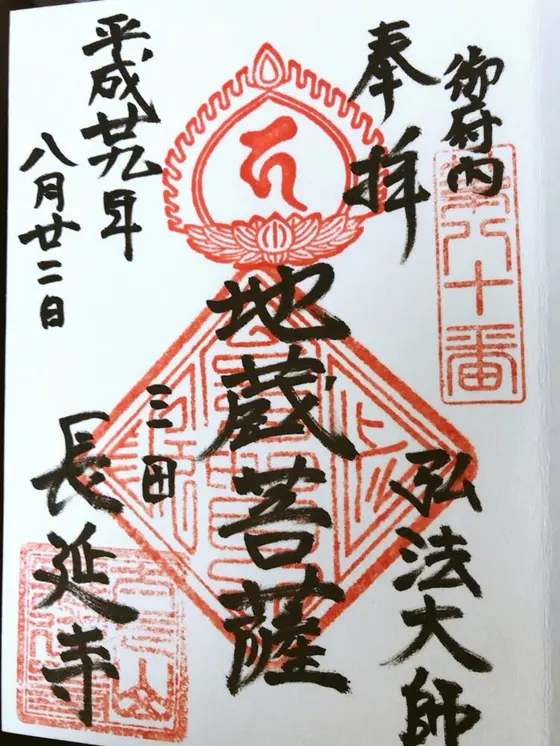 御府内
第八十番
奉拝
弘法大師
地蔵菩薩
平成廿九年
八月廿二日
三田
長延寺